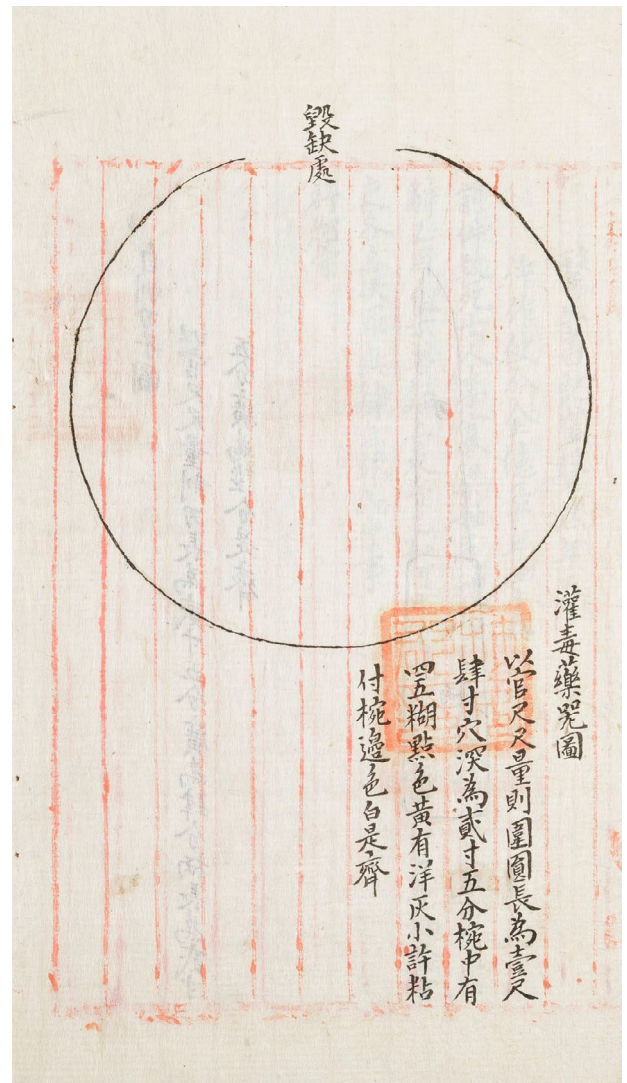 毀缺處
灌毒藥咒圖
以官尺尺量則圍圓長為壹尺
肆寸穴深為貳寸五分椀中有
四五糊點色黃有洋灰小許粘
付椀邊色白是齊